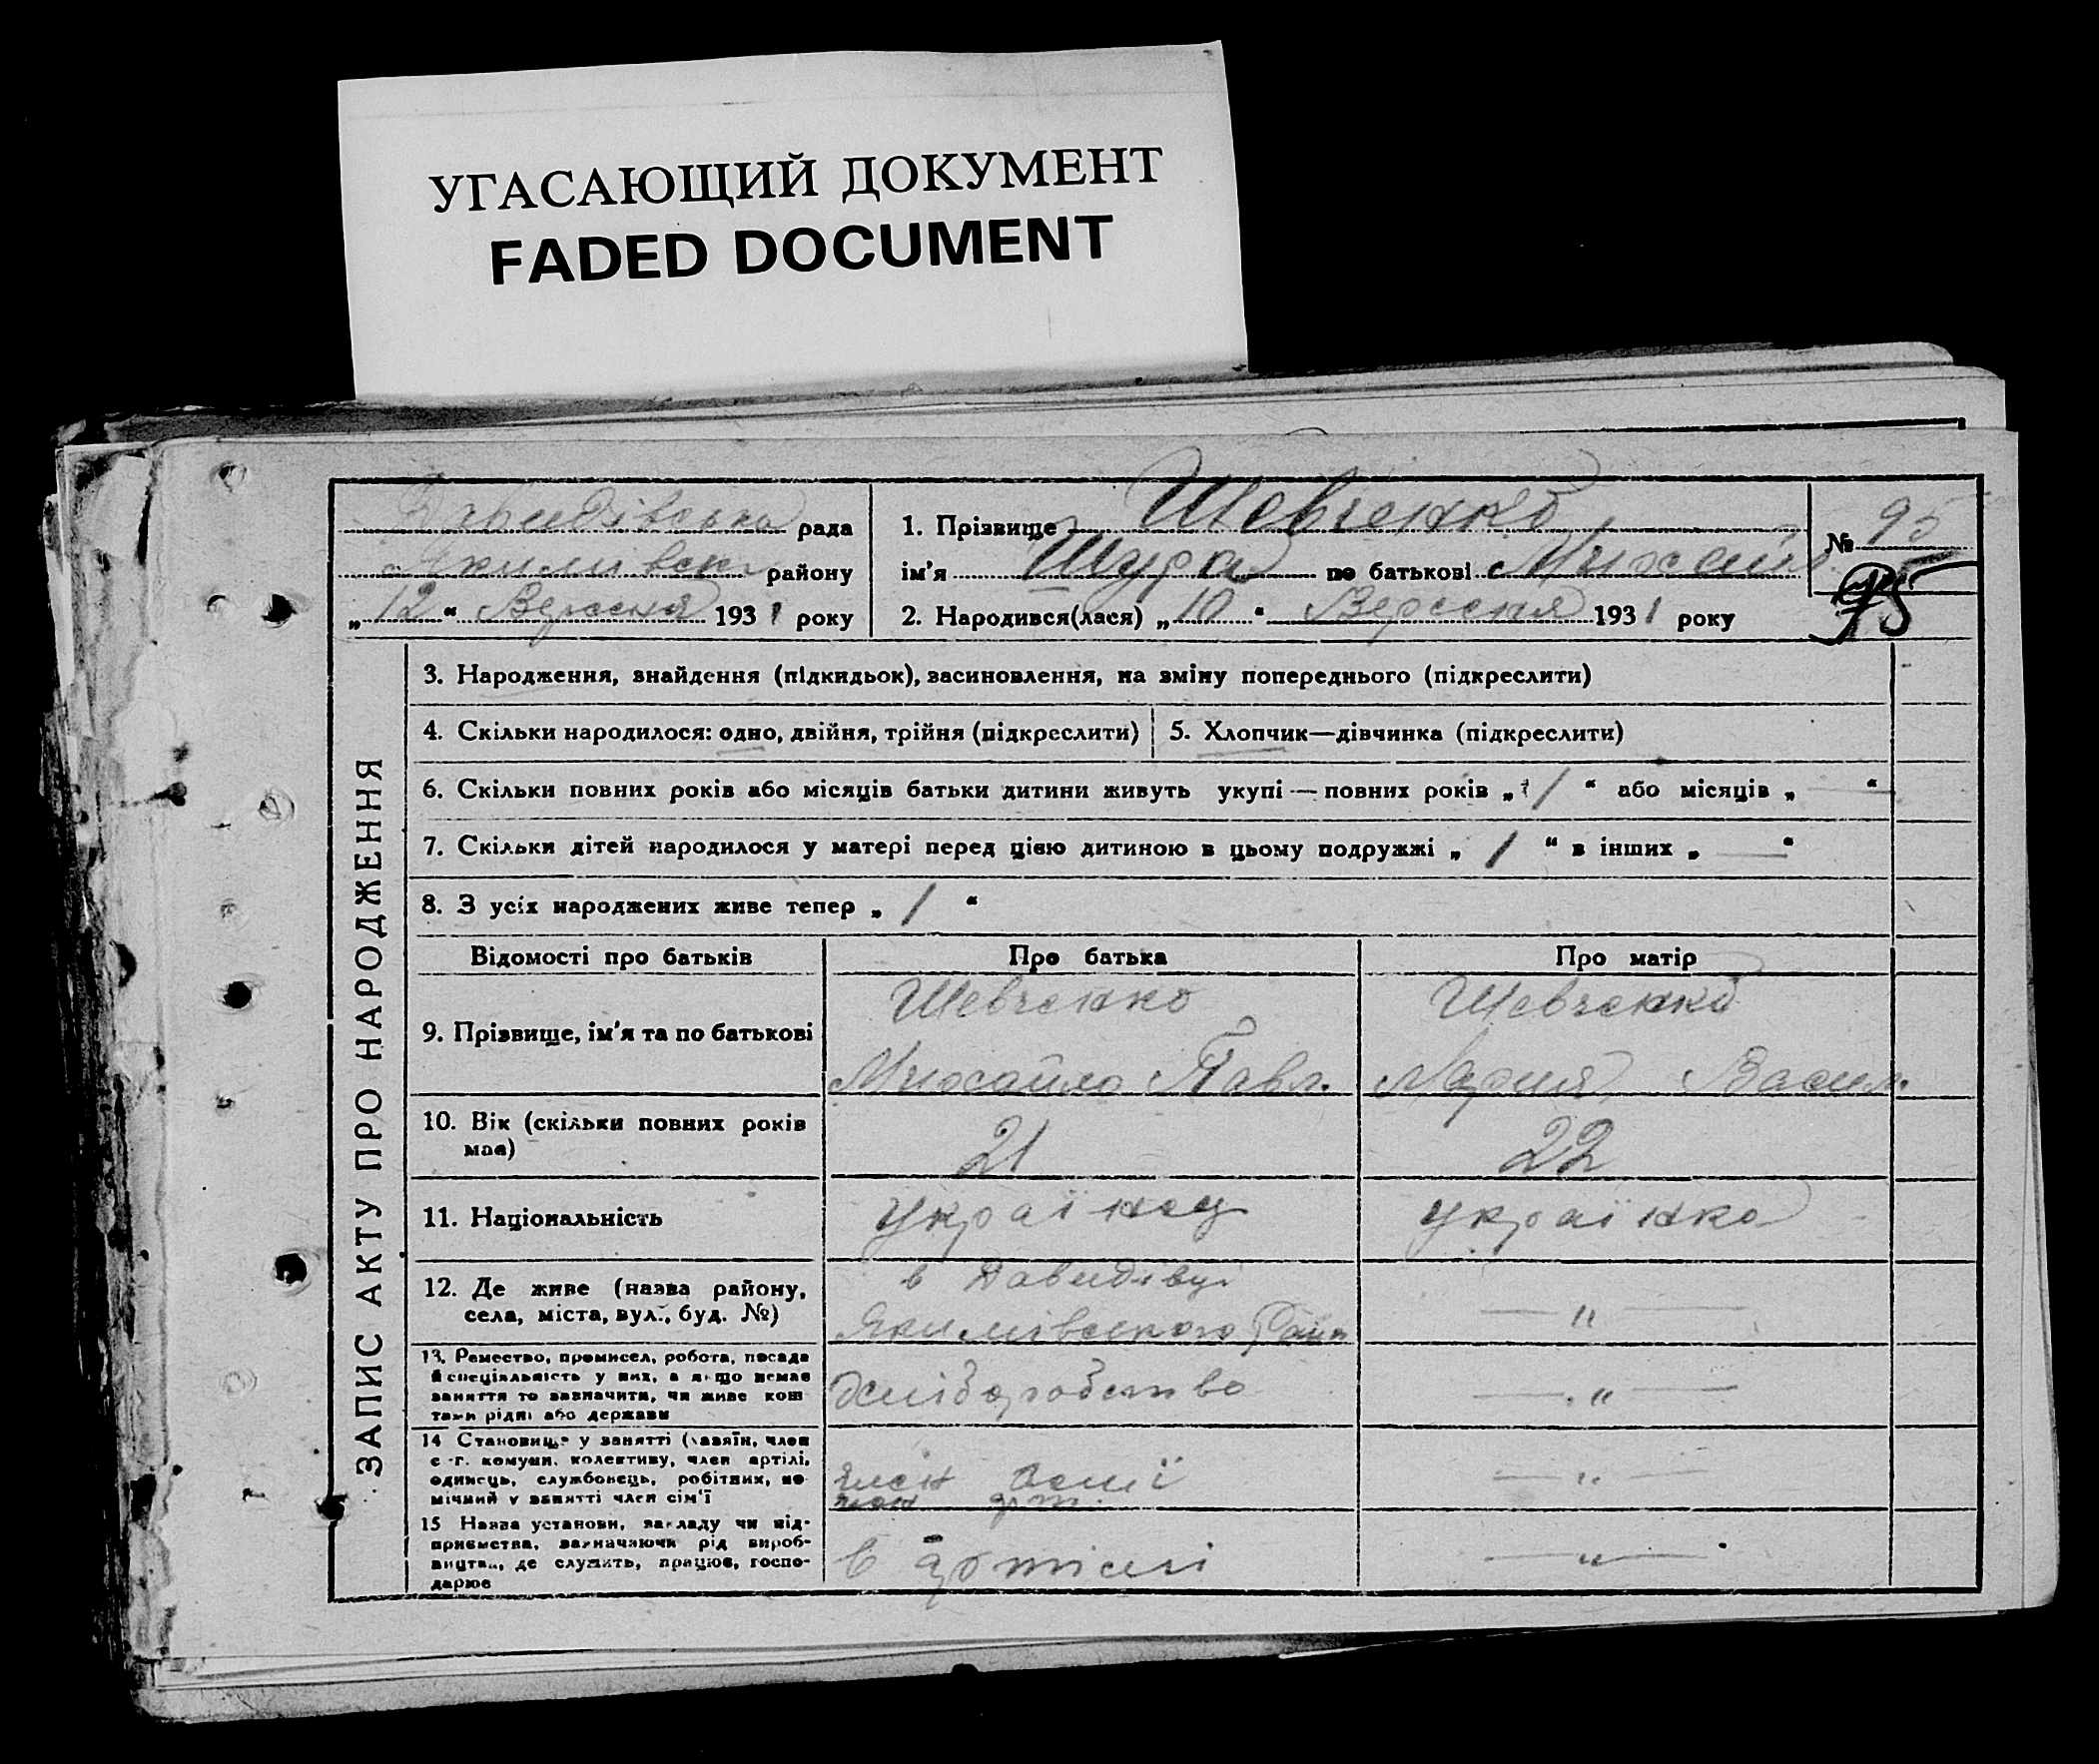 УГАСАЮЩИЙ ДОКУМЕНТ
FADED DOCUMENT
Давидівська рада
Якимівськ району
„12“ Вересня 1931 року
1. Прізвище Шевченко
ім'я Шура по батькові Михайл.
2. Народився(лася) „10“ Вересня 1931 року
№ 95
95
ЗАПИС АКТУ ПРО НАРОДЖЕННЯ
3. Народження, знайдення (підкидьок), засиновлення, на зміну попереднього (підкреслити)
4. Скільки народилося: одно, двійня, трійня (підкреслити)
5. Хлопчик—дівчинка (підкреслити)
6. Скільки повних років або місяців батьки дитини живуть укупі — повних років „1“ або місяців „—“
7. Скільки дітей народилося у матері перед цією дитиною в цьому подружжі „1“ в інших „—“
8. З усіх народжених живе тепер „1“
Відомості про батьків Про батька Про матір
9. Прізвище, ім'я та по батькові
Шевченко
Михайло Павл.
Шевченко
Мария Васил.
10. Вік (скільки повних років
має)
21
22
11. Національність
Українец
Українка
12. Де живе (назва району,
села, міста, вул., буд. №)
в Давидівці
Якимівського Район
— " —
13. Ремество, промисел, робота, посада
й спеціяльність у них, а якщо немає
заняття то зазначити, чи живе кош
тами рідні або держави
Хліборобство
— " —
14 Становище у занятті (хазяїн, член
с.-г. комуни, колективу, член артілі,
одинець, службовець, робітник, по
мічний у занятті член сім'ї
член
член арт.
— " —
15 Назва установи, закладу чи під-
приємства, зазначаючи рід вироб-
ництва, де служить, працює, госпо-
дарює
в артілі
— " —